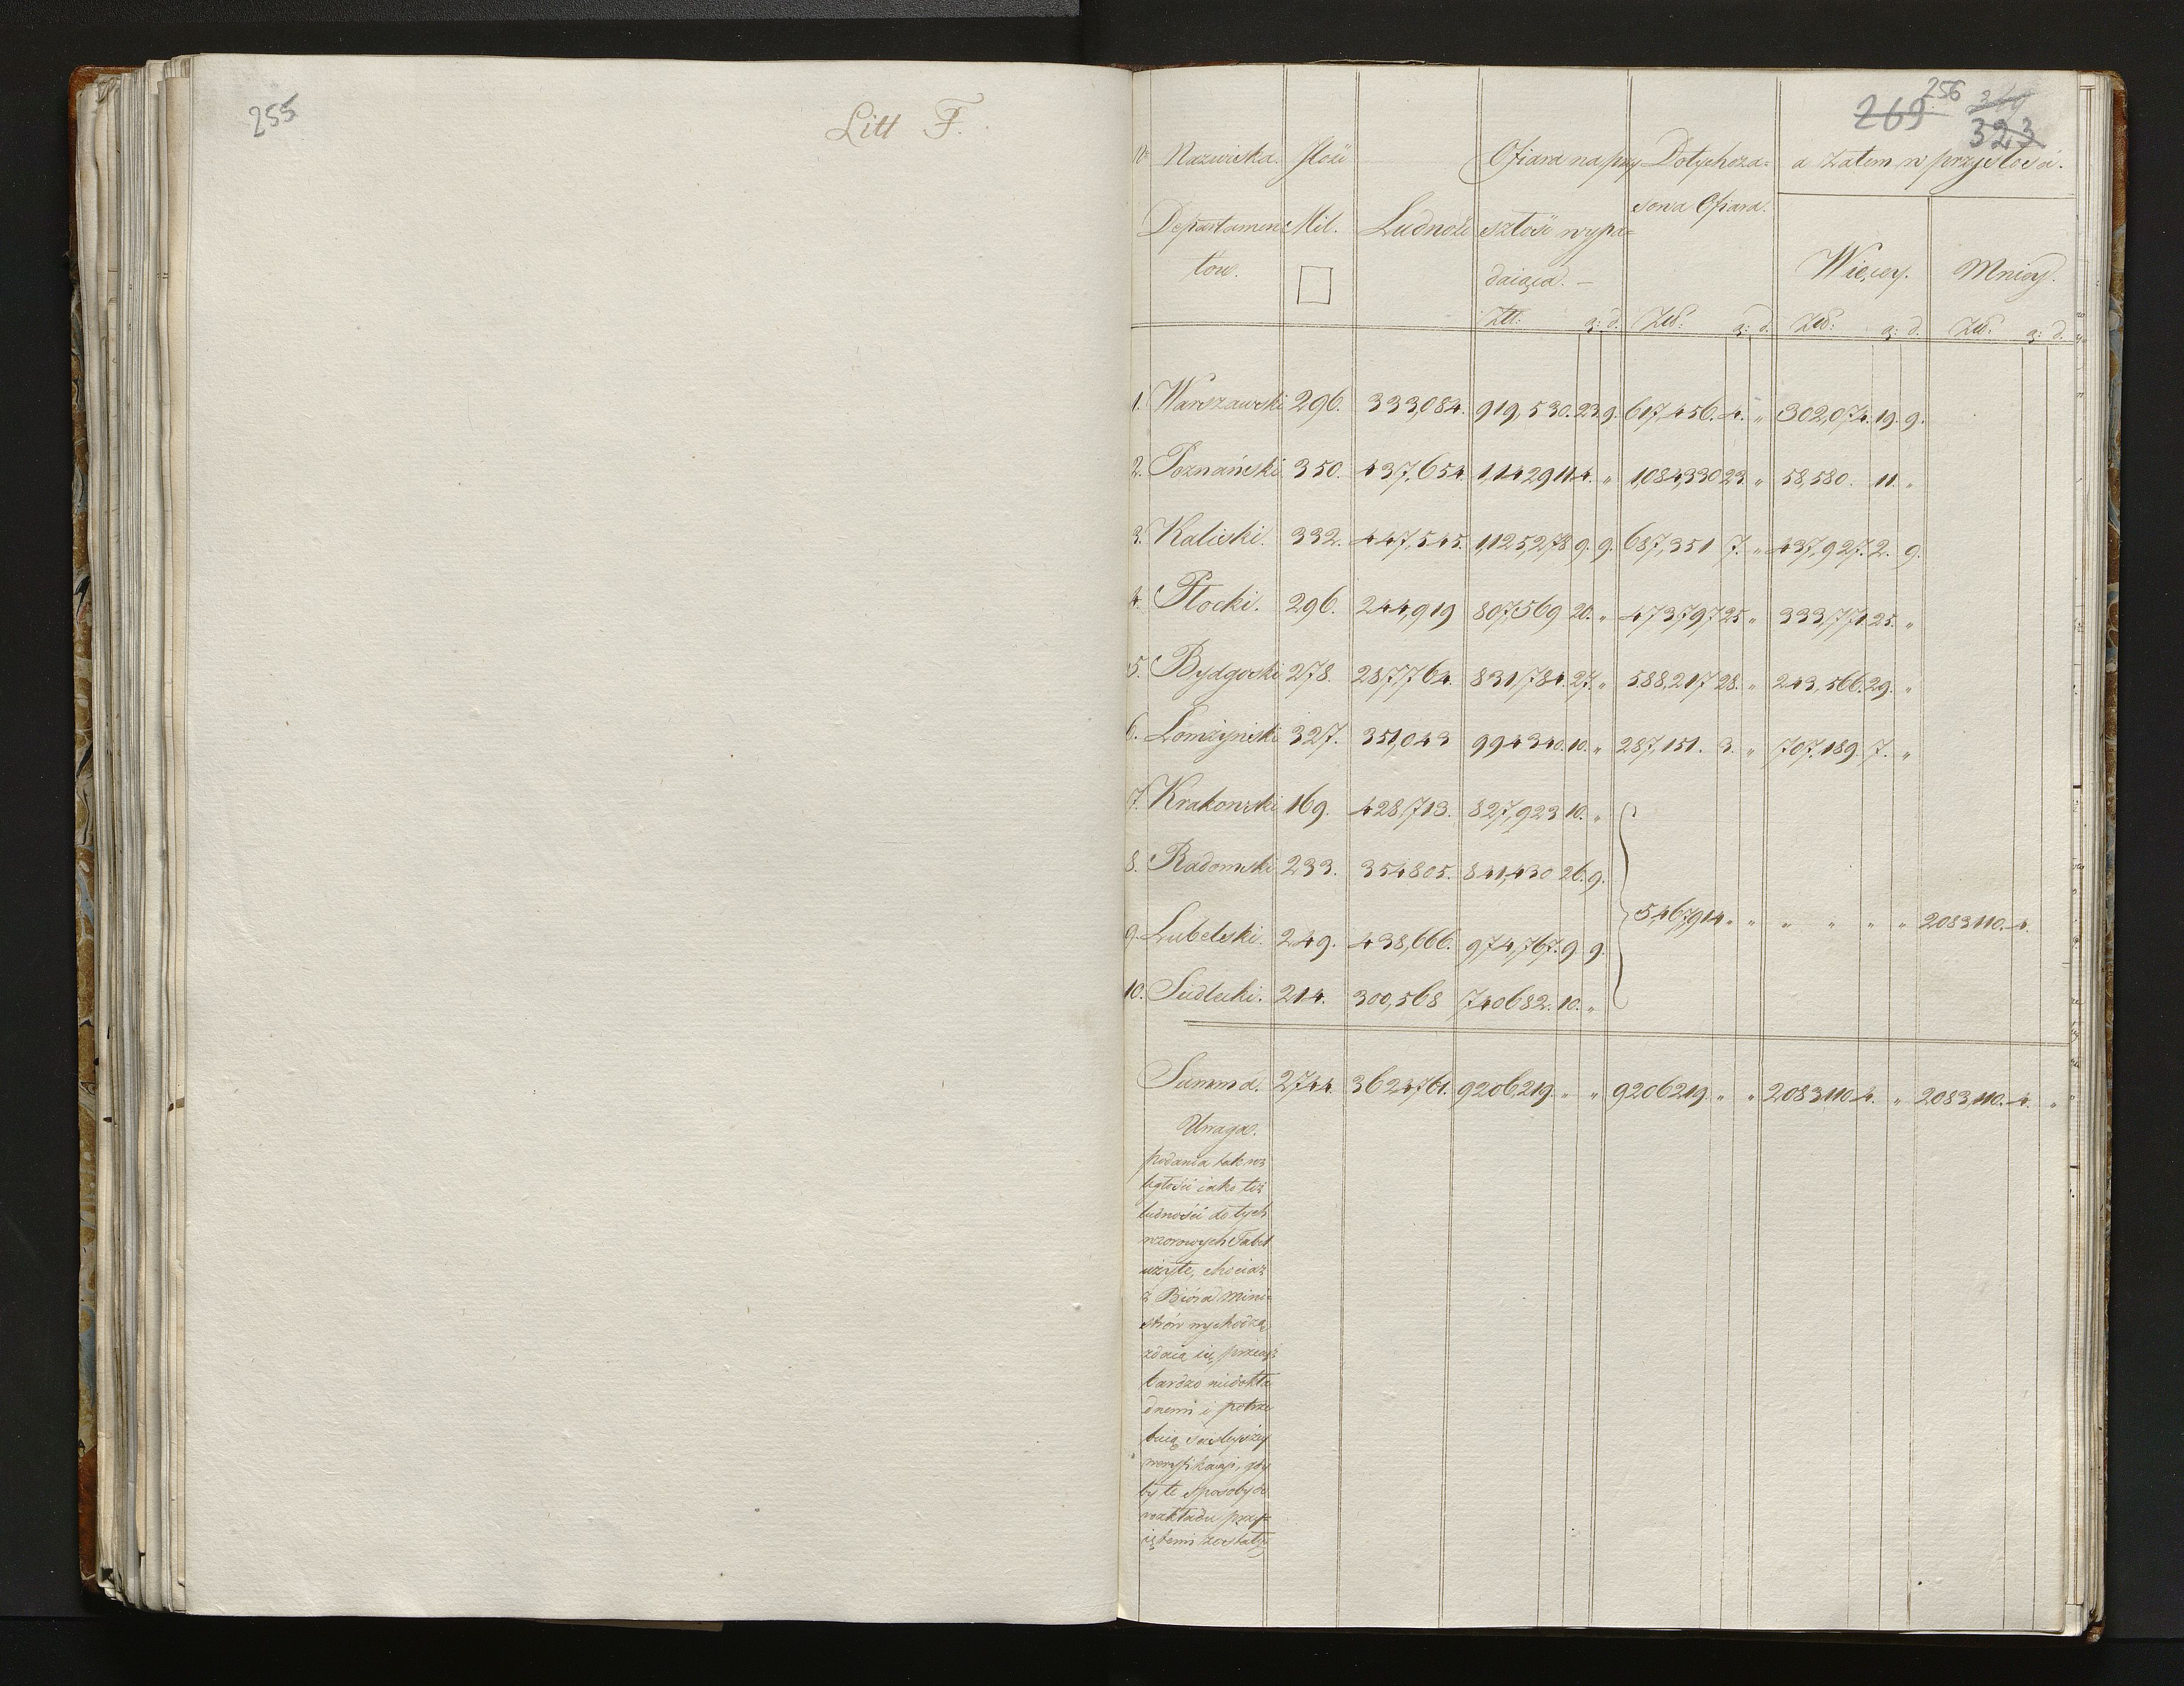 255
Litt F.
256
269 319
323
No Nazwiska Departamen- tow. Ilość Mil. □ Ludność Ofiara na przy- szłość wypa- daiąca. — Dotychcza- sowa Ofiara. a zatem w przyszłości.
Więcey. Mniey.
Złł: g: d. Złł: g: d. Złł: g: d. Złł: g: d.
1. Warszawski 296. 333,084. 919,530. 23. 9. 617,456. 4. " 302,074. 19. 9.
2. Poznański 350. 437,654. 1,142911. 4. " 1,084,330 23. " 58,580. 11. "
3. Kaliski. 332. 447,545. 1,125,278 9. 9. 687,351 7. " 437,927. 2. 9.
4. Płocki. 296. 244,919 807,569 20. " 473,797 25 " 333,771. 25. "
5. Bydgoski 278. 287,764. 831,784. 27. " 588,217 28. " 243,566. 29. "
6. Łomżyński 327. 351,043 994340. 10. " 287,151. 3. " 707,189. 7. "
7. Krakowski 169. 428,713. 827,923 10. "
8. Radomski 233. 354805. 841,430 26. 9.
5,467,914. " " " " " " 2083110. 4.
9. Lubelski. 249. 438,666. 974,767. 9. 9.
10. Siedlecki. 214. 300,568 740682. 10. "
Summa. 2744. 3624761. 9206,219. " " 9206219 " " 2083110. 4. " 2083,110. 4. "
Uwaga.
podania tak roz
ległości iako też
ludności do tych
wzorowych Tabel
użyte, chociaż
z Biórad Mini-
strów wychodzą,
zdaią się przeciąż
bardzo niedokła
dnemi i potrze
buią ściśleyszey
weryfikacyi, gdy
by te sposoby do
rozkładu przy-
iętemi zostały